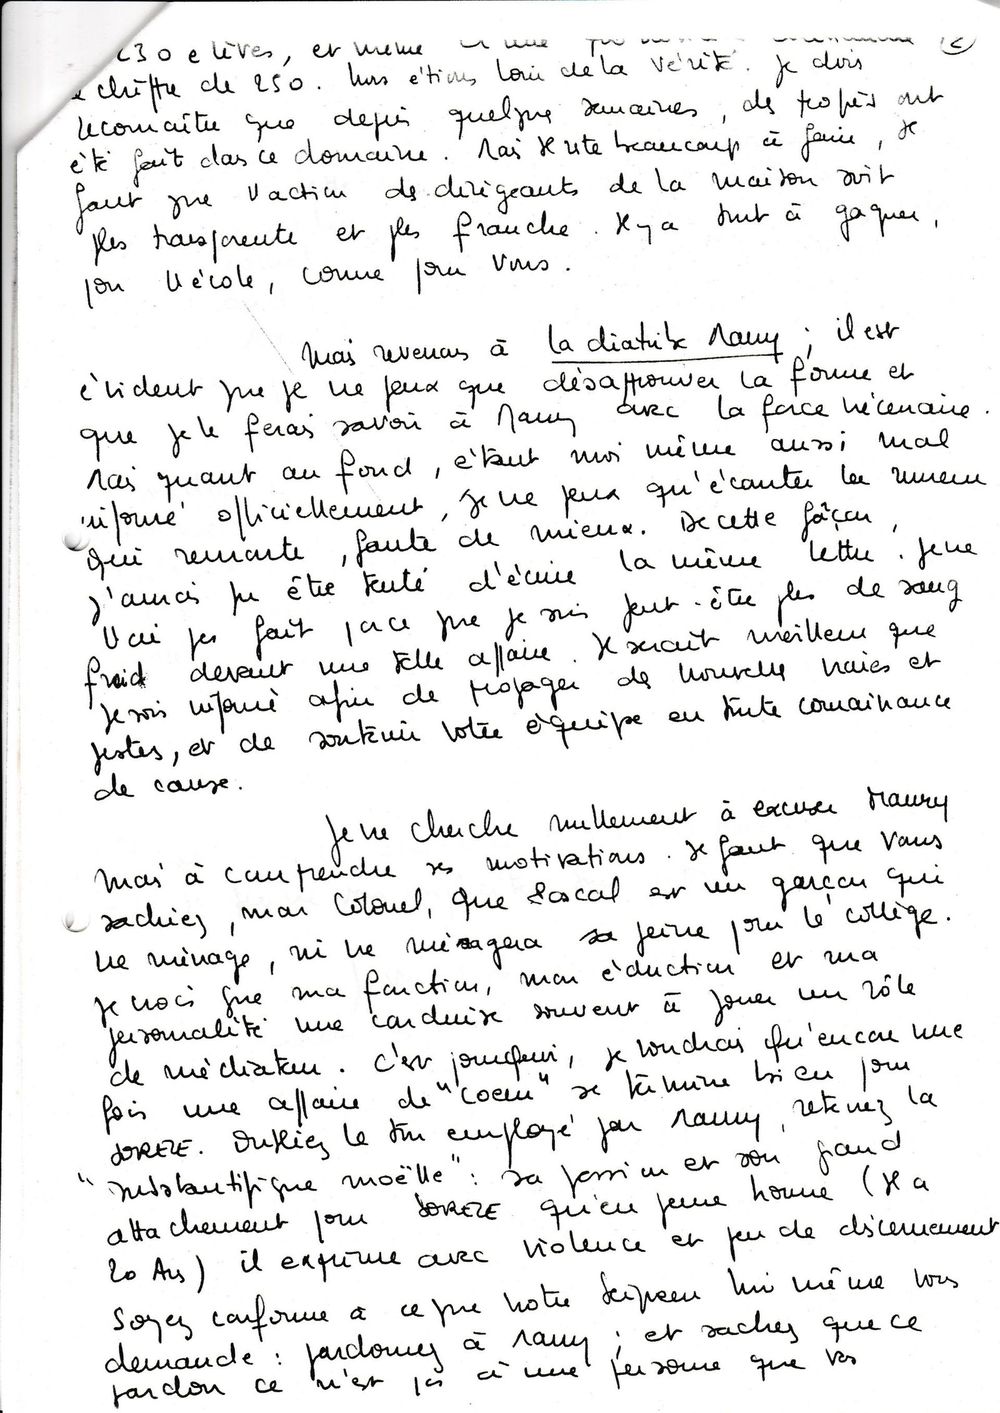 230 élèves, et même
chiffre de 250. Nous étions loin de la vérité. Je dois
reconnaître que depuis quelques semaines, des progrès ont
été fait dans ce domaine. Mais il reste beaucoup à faire, il
faut que l'action des dirigeants de la maison soit
plus transparente et plus franche. Il y a tout à gagner,
pour l'école, comme pour vous.
Mais revenons à la diatribe Maury ; il est
évident que je ne peux que désapprouver la forme et
que je le ferais savoir à Maury avec la force nécessaire.
Mais quant au fond, étant moi même aussi mal
informé officiellement, je ne peux qu'écouter la rumeur
qui remonte, faute de mieux. De cette façon,
j'aurais pu être tenté d'écrire la même lettre. Je ne
l'ai pas fait parce que je suis peut-être plus de sang
froid devant une telle affaire. Il serait meilleur que
je sois informé afin de propager de nouvelles vraies et
justes, et de soutenir votre équipe en toute connaissance
de cause.
Je ne cherche nullement à excuser Maury
mais à comprendre ses motivations. Il faut que vous
sachiez, mon Colonel, que Pascal est un garçon qui
ne ménage, ni ne ménagera sa peine pour le collège.
Je crois que ma fonction, mon éduction et ma
personnalité me conduise souvent à jouer un rôle
de médiateur. C'est pourquoi, je voudrais qu'encore une
fois une affaire de "coeur" se termine bien pour
SOREZE. Oubliez le ton employé par Maury, retenez la
"substantifique moëlle" : sa passion et son grand
attachement pour SOREZE qu'en jeune homme (il a
20 Ans) il exprime avec violence et peu de discernement
Soyez conforme à ce que notre Seigneur lui même vous
demande : pardonnez à Maury ; et sachez que ce
pardon ce n'est pas à une personne que vs